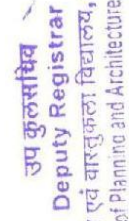 उप कुलसचिव
Deputy Registrar
एवं वास्तुकला विद्यालय,
of Planning and Architecture